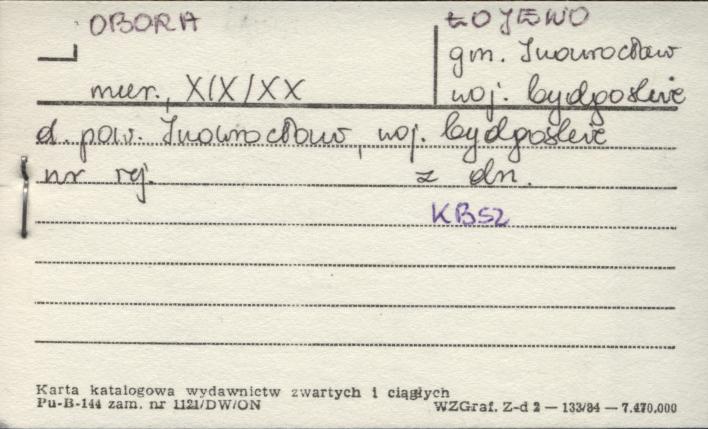 OBORA
ŁOJEWO
gm. Inowrocław
mur., XIX/XX
woj. bydgoskie
d. pow. Inowrocław, woj. bydgoskie
nr rej. z dn.
KBS2
Karta katalogowa wydawnictw zwartych i ciągłych
Pu-B-144 zam. nr 1121/DW/ON
WZGraf. Z-d 2 — 133/84 — 7.470.000